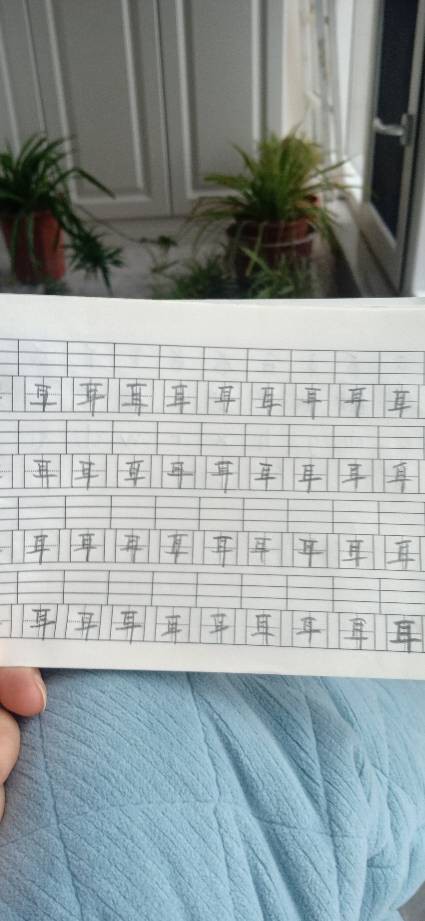 耳耳耳耳耳耳耳耳耳
耳耳耳耳耳耳耳耳耳
耳耳耳耳耳耳耳耳耳
耳耳耳耳耳耳耳耳耳